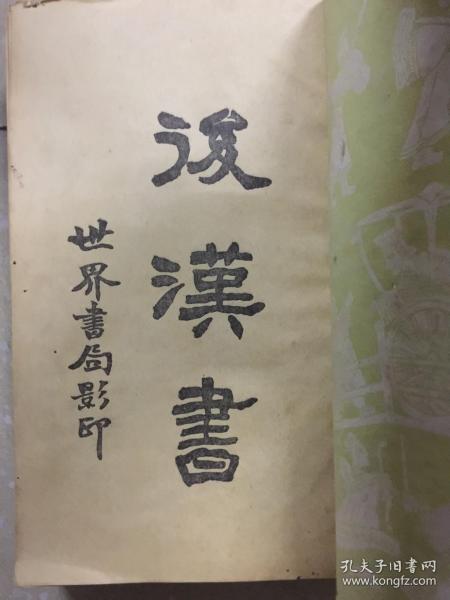 後漢書
世界書局影印
孔夫子旧书网
www.kongfz.com